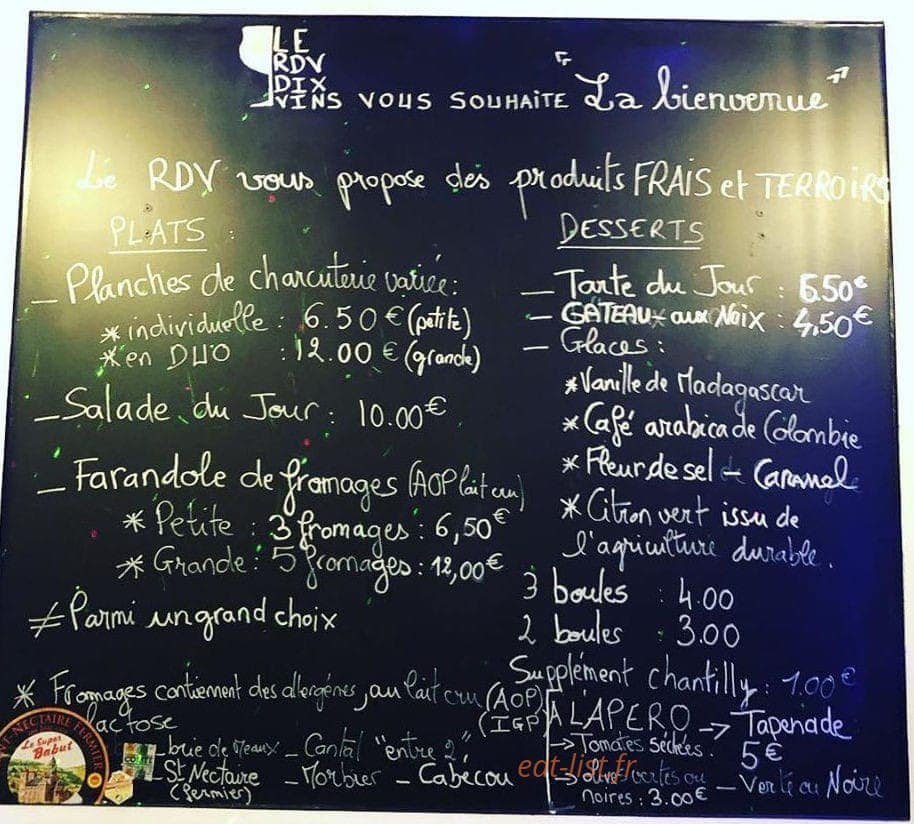 LE
RDV
DIX
VINS VOUS SOUHAITE "La bienvenue"
Le RDV vous propose des produits FRAIS et TERROIRS
PLATS :
_ Planches de charcuterie variée :
* individuelle : 6.50 € (petite)
* en DUO : 12.00 € (grande)
_ Salade du Jour : 10.00€
_ Farandole de fromages (AOP lait cru)
* Petite : 3 fromages : 6,50€
* Grande : 5 fromages : 12,00€
≠ Parmi un grand choix
* Fromages contiennent des allergènes, au lait cru (AOP)
lactose (IGP)
_ brie de Meaux _ Cantal "entre 2"
_ St Nectaire _ Morbier _ Cabécou
(fermier)
NECTAIRE FERMIER
Le Super
Babut
DESSERTS
_ Tarte du Jour : 6.50€
_ GATEAU aux Noix : 4,50€
_ Glaces :
* Vanille de Madagascar
* Café arabica de Colombie
* Fleur de sel - Caramel
* Citron vert issu de
l'agriculture durable.
3 boules : 4.00
2 boules : 3.00
Supplément chantilly : 1.00€
A L'APERO -> Tapenade
-> Tomates Séchées : 5€
-> olives vertes ou _ Verte ou Noire
noires : 3.00€
eat-list.fr